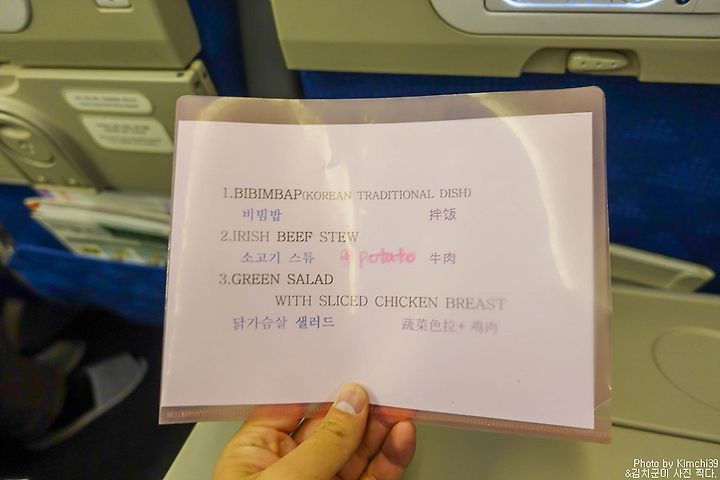 1.BIBIMBAP(KOREAN TRADITIONAL DISH)
비빔밥 拌饭
2.IRISH BEEF STEW
소고기 스튜 ⊕ potato 牛肉
3.GREEN SALAD
WITH SLICED CHICKEN BREAST
닭가슴살 샐러드 蔬菜色拉+ 鸡肉
Photo by Kimchi39
&김치군이 사진 찍다.